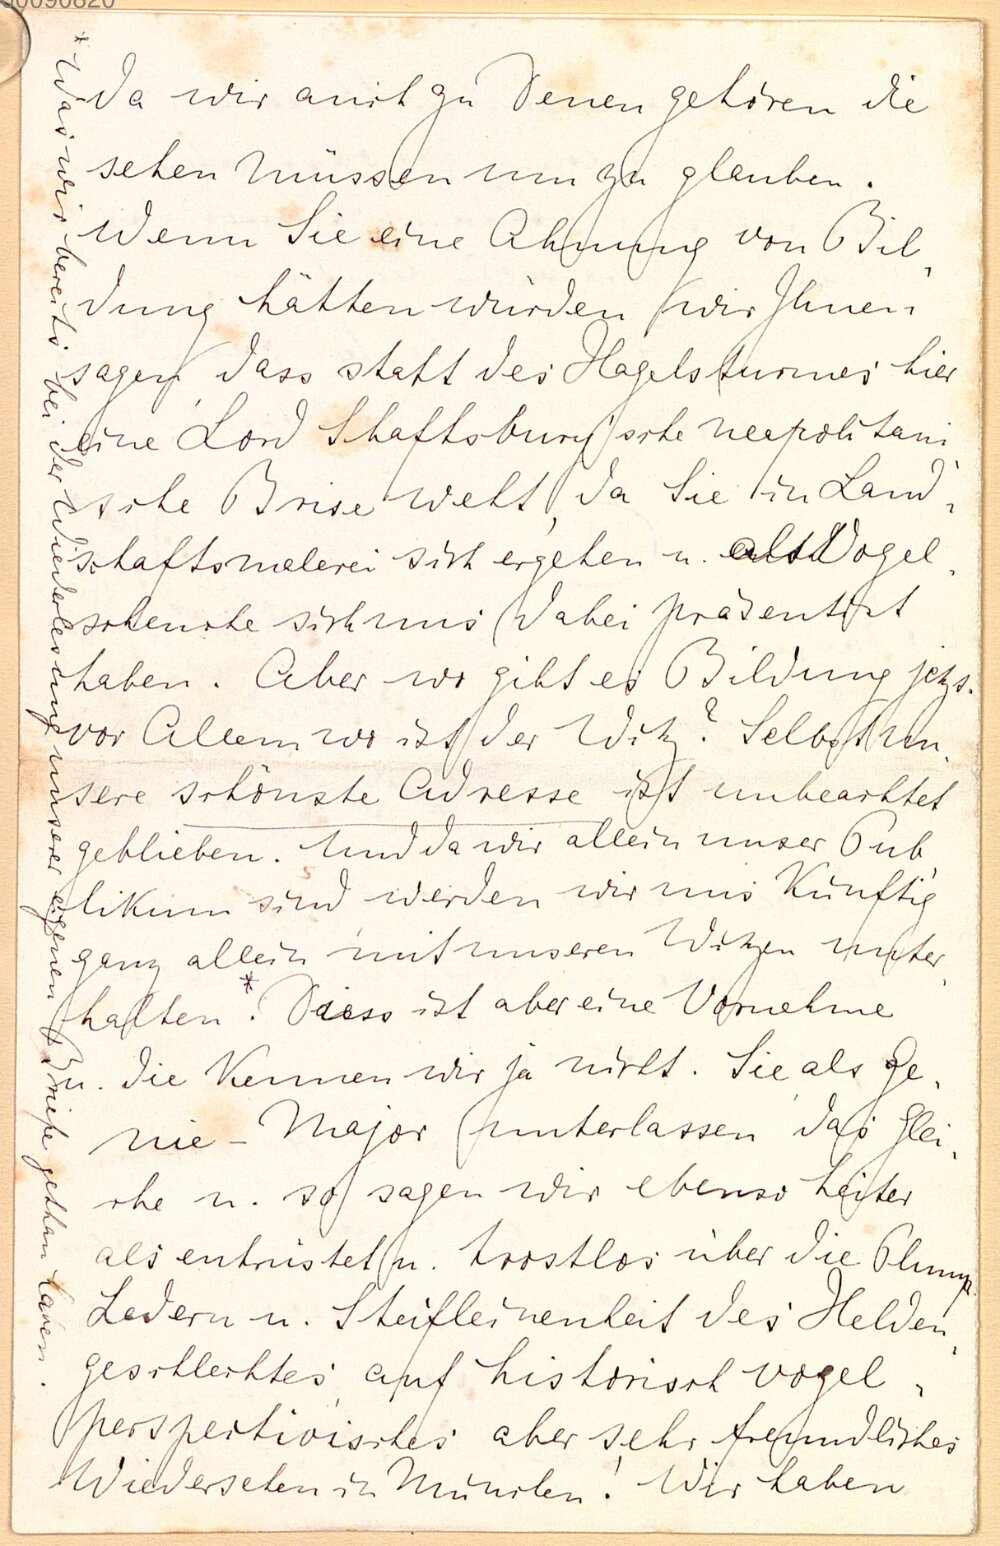 Da wir auch zu Denen gehören die
sehen müssen um zu glauben.
Wenn Sie eine Ahnung von Bil-
dung hätten würden wir Ihnen
sagen, dass statt des Hagelsturmes hier
eine Lord Shaftsbury'sche neapolitani
sche Brise weht, da Sie in Land-
schaftsmalerei sich ergehen u. als Vogel-
scheuche sich uns dabei präsentirt
haben. Aber wo gibt es Bildung jetzt.
vor Allem wo ist der Witz? Selbst un-
sere schönste Adresse ist unbeachtet
geblieben. Und da wir allein unser Pub-
likum sind werden wir uns künftig
ganz allein mit unseren Witzen unter-
halten *. Diess ist aber eine Vornehme
u. die kennen wir ja nicht. Sie als Ge-
nie-Major unterlassen das Glei-
che u. so sagen wir ebenso heiter
als entrüstet u. trostlos über die Plump
Ledern u. Steifleinenheit des Helden-
geschlechtes, auf historisch vogel-
perspectivisches aber sehr freundliches
Wiedersehen in München! Wir haben
* Was wir bereits bei der Wiederlesung unserer eigenen Briefe gethan haben.